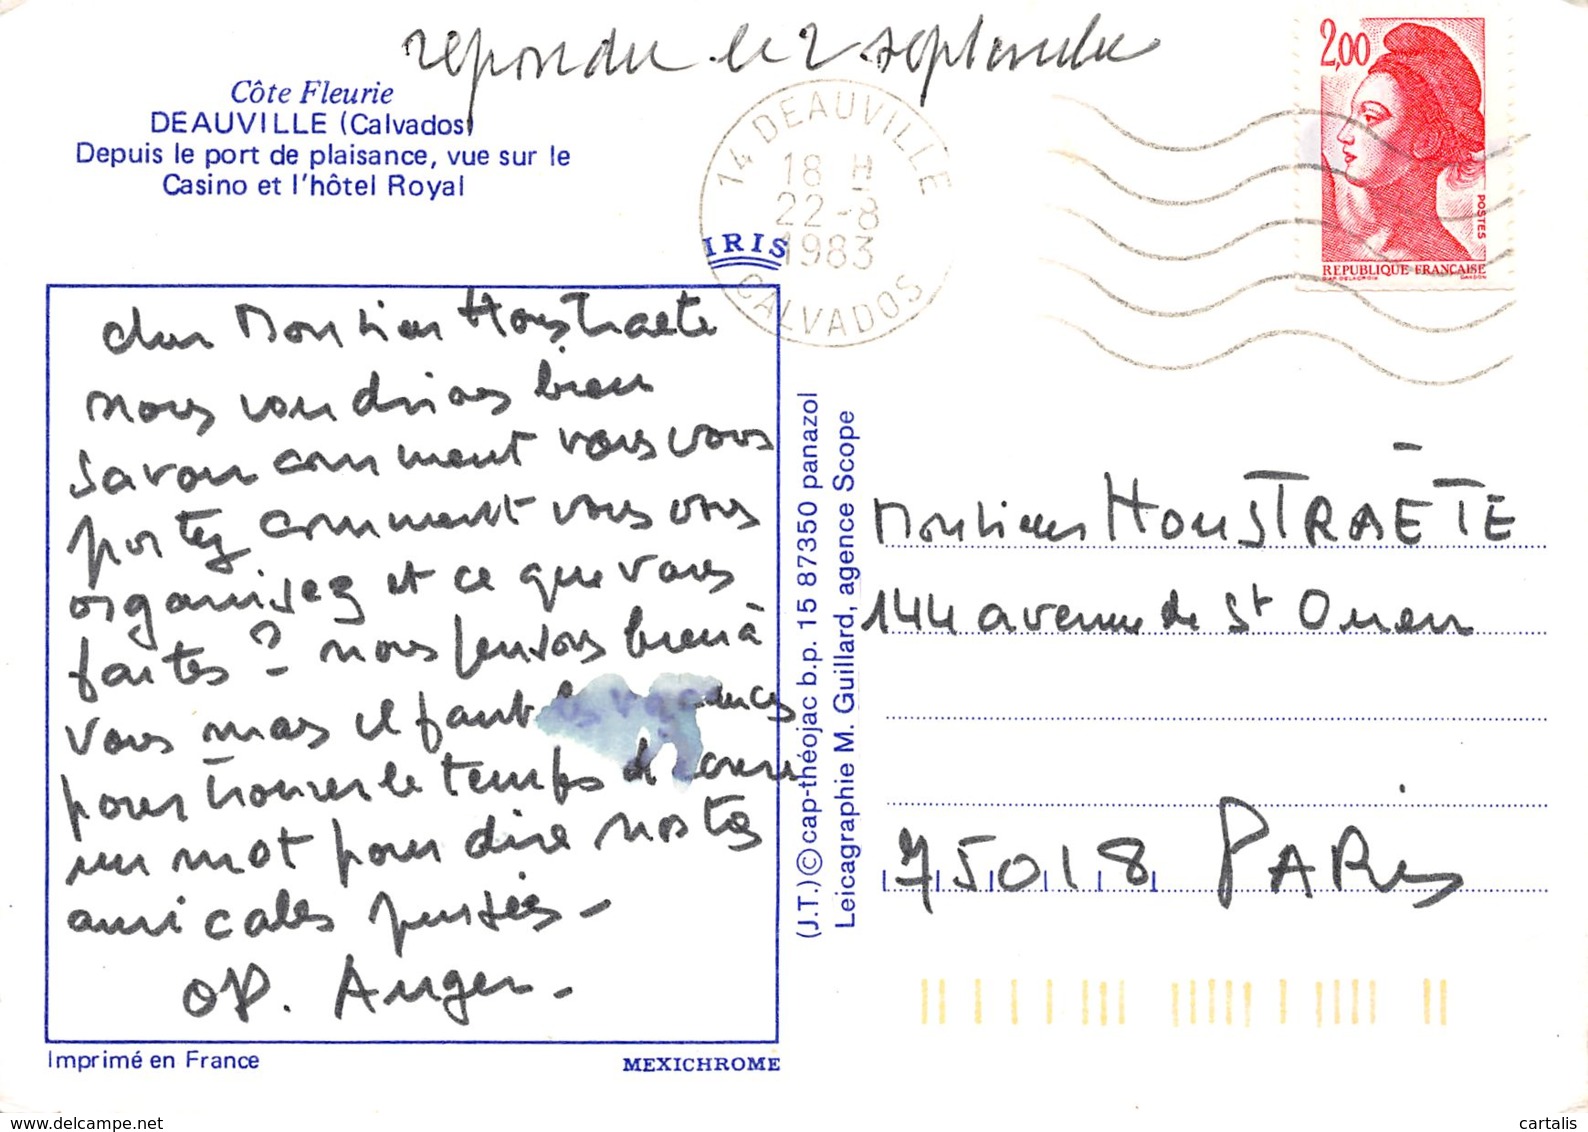 repondu le 2 septembre
Côte Fleurie
DEAUVILLE (Calvados)
Depuis le port de plaisance, vue sur le
Casino et l'hôtel Royal
14 DEAUVILLE
18 H
22-8
1983
CALVADOS
IRIS
2,00
POSTES
REPUBLIQUE FRANÇAISE
DAP. DELACROIX GANDON
cher Monsieur Houstraete
nous voudrions bien
savoir comment vous vous
portez comment vous vous
organisez et ce que vous
faites ? - nous pensons bien à
vous mais il faut les vacances
pour trouver le temps d'écrire
un mot pour dire nos très
amicales pensées -
OP. Auger -
(J.T.) © cap-théojac b.p. 15 87350 panazol
Leicagraphie M. Guillard, agence Scope
Monsieur HOUSTRAËTE
144 avenue de St Ouen
75018 PARis
Imprimé en France
MEXICHROME
© www.delcampe.net cartalis